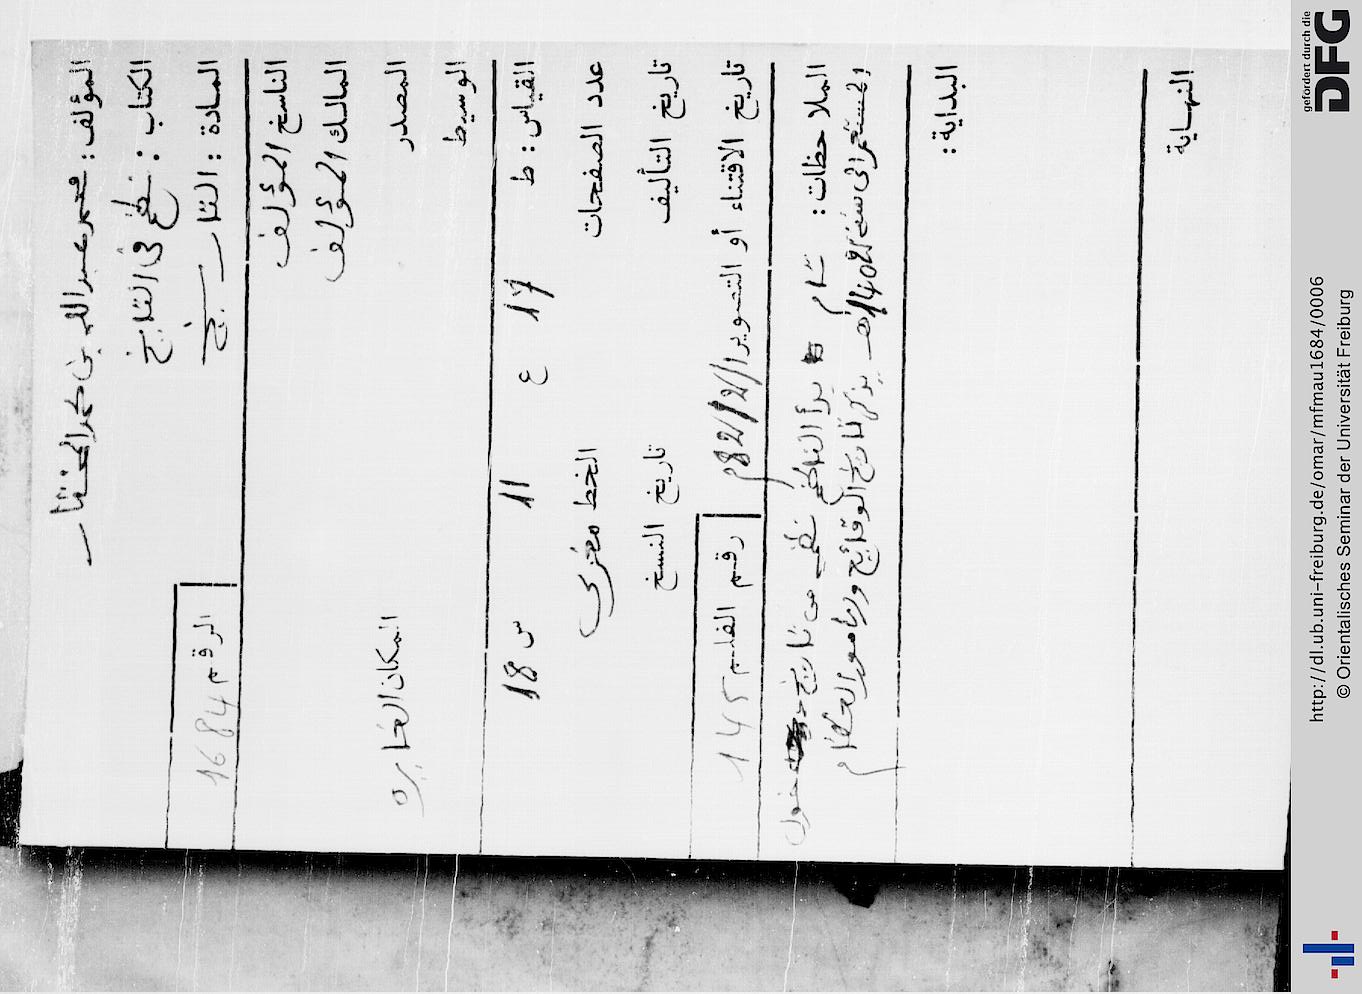 المؤلف: محمد عبد الله بن محمد المختار
الكتاب: نظم في التاريخ
المادة: التاريخ
الرقم 1684
الناسخ المؤلف
المالك المؤلف
المصدر
المكان
الوسيط
القياس: ط 17 ع 11 س 18
عدد الصفحات
الخط مغربي
تاريخ التأليف
تاريخ النسخ
تاريخ الاقتناء أو التصوير 1/2/82م
رقم الفليم 145
الملاحظات: تام يبدأ الناظم نظمه من تاريخ دخول
إلى سنة 1402هـ يذكر تاريخ الوقائع
البداية:
النهاية
gefördert durch die
DFG
http://dl.ub.uni-freiburg.de/omar/mfmau1684/0006
© Orientalisches Seminar der Universität Freiburg